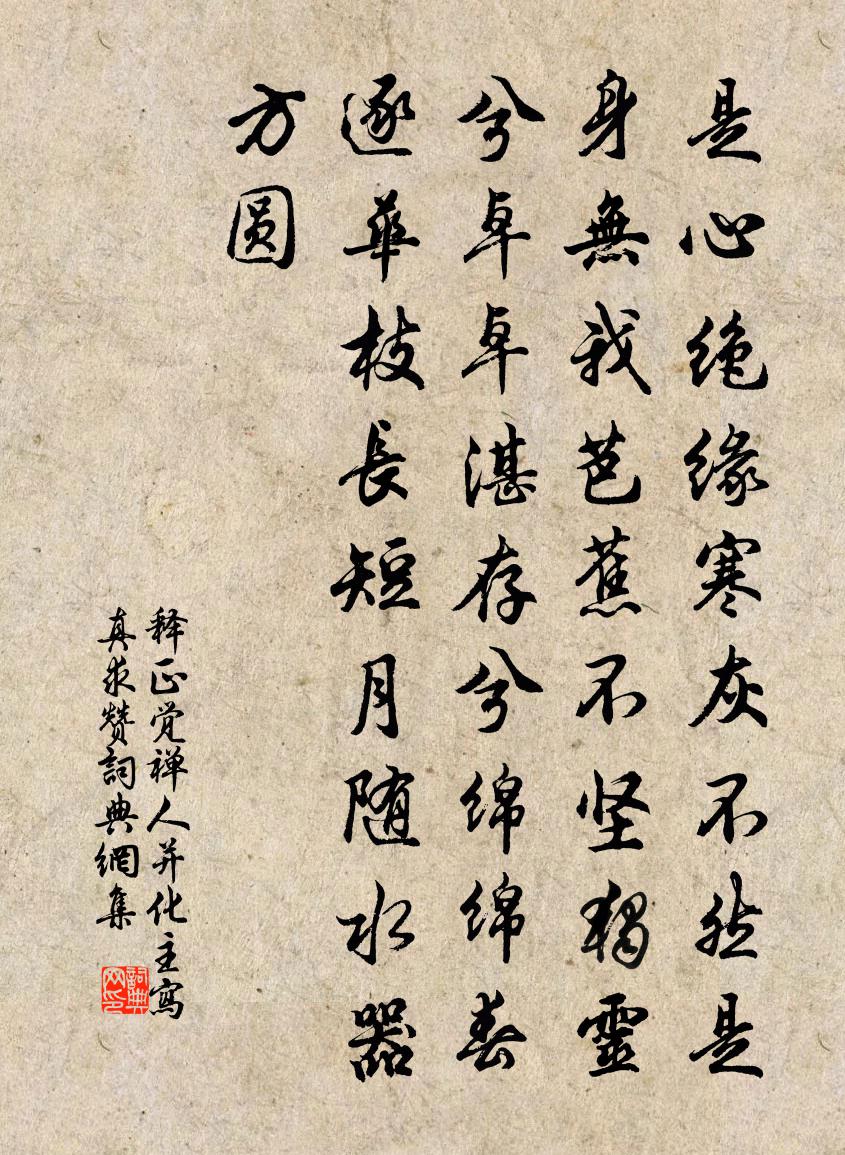 是心绝缘寒灰不然是
身無我芭蕉不坚獨靈
兮卓卓湛存兮绵绵春
逐華枝長短月随水器
方圆
释正觉禅人并化主寫
真求赞詞典網集
詞典网印